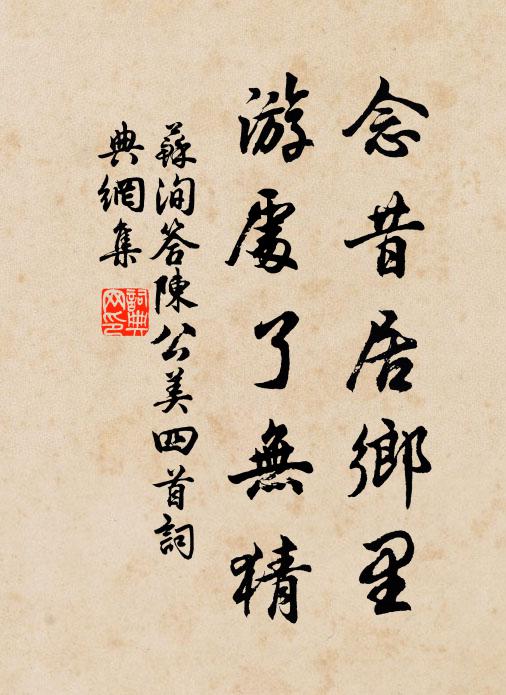 念昔居鄉里
游處了無猜
蘇洵答陳公美四首詞
典網集
詞典網印